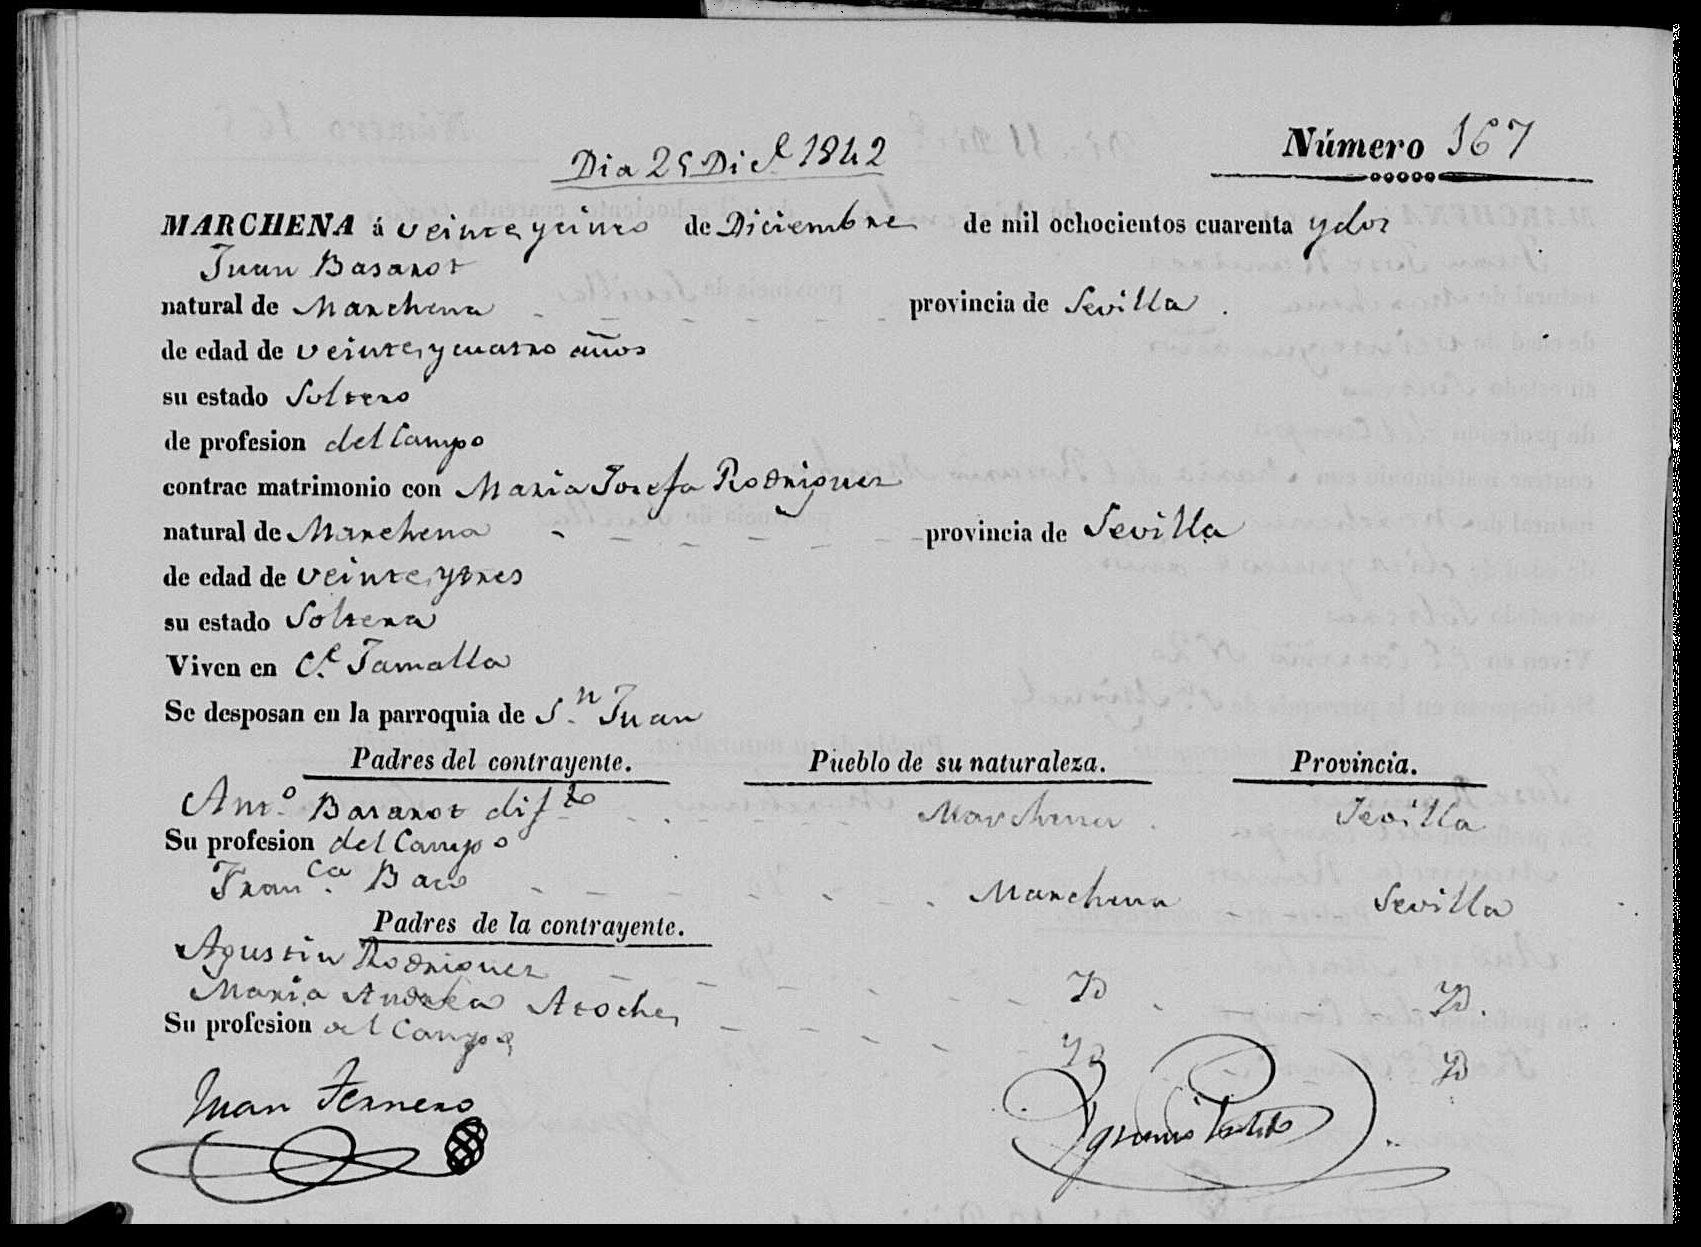 Número 167
Dia 25 Dic.e 1842
MARCHENA á veinte y cinco de Diciembre de mil ochocientos cuarenta y dos
Juan Basarot
natural de Marchena provincia de Sevilla
de edad de veinte y cuatro años
su estado Soltero
de profesion del Campo
contrae matrimonio con Maria Josefa Rodriguez
natural de Marchena provincia de Sevilla
de edad de veinte y tres
su estado Soltera
Viven en C.e
Se desposan en la parroquia de S.n Juan
Padres del contrayente. Pueblo de su naturaleza. Provincia.
Ant.o Basarot dif.to Marchena Sevilla
Su profesion del Campo
Fran.ca Marchena Sevilla
Padres de la contrayente.
Agustin Rodriguez Yd Yd.
Maria Andrea Atoche Yd Yd
Su profesion del Campo
Juan Ferrero Ygnacio